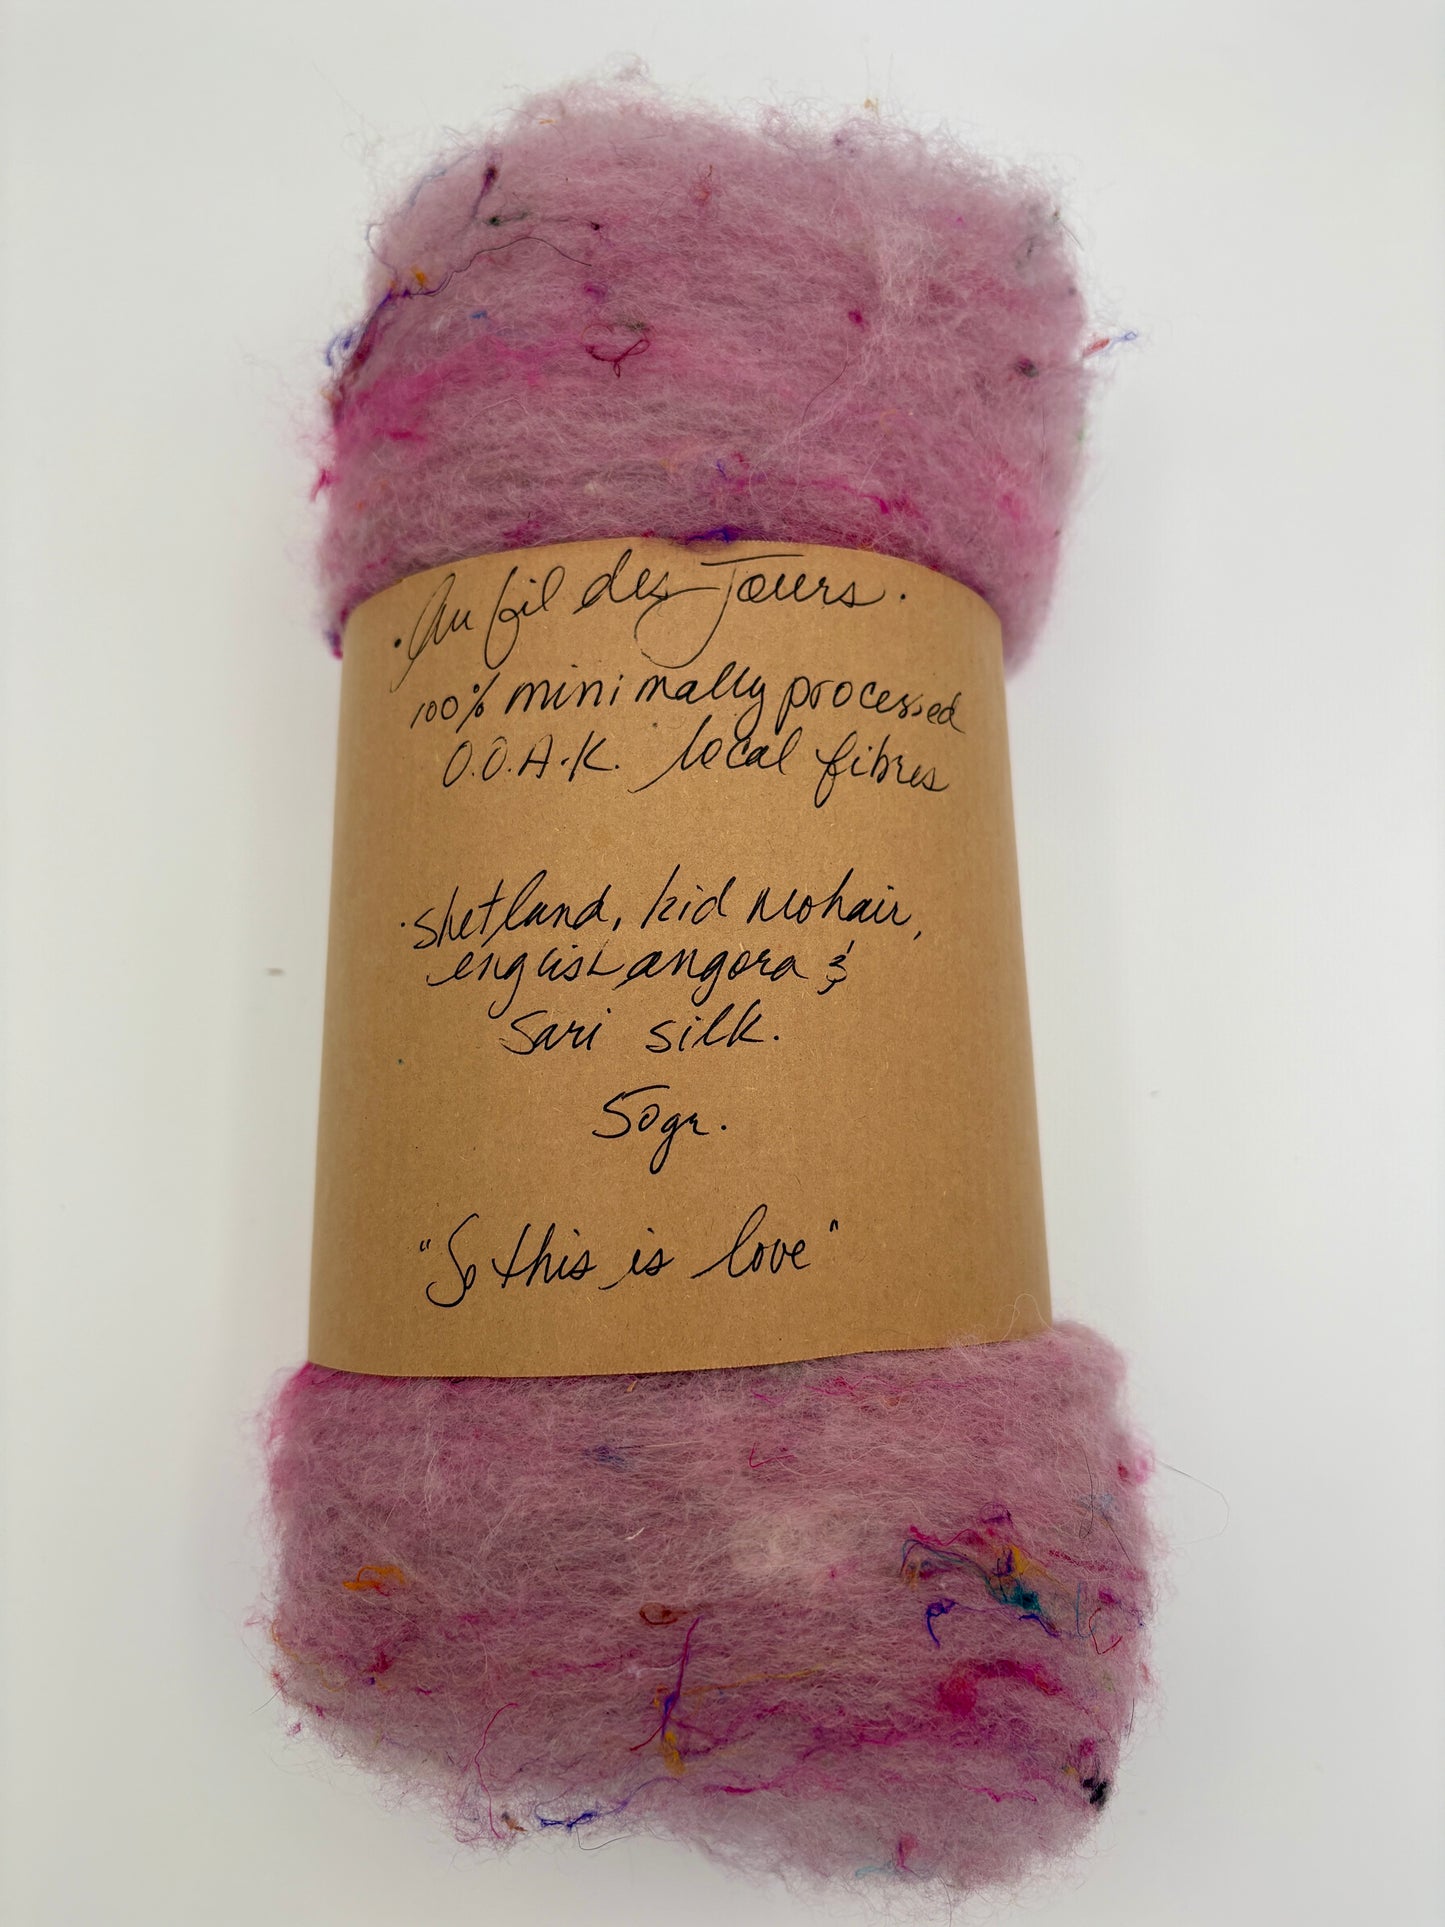 · Au fil des Jours ·
100% minimally processed
O.O.A.K. local fibres
· Shetland, kid Mohair,
english angora &
Sari silk.
50gr.
"So this is love"